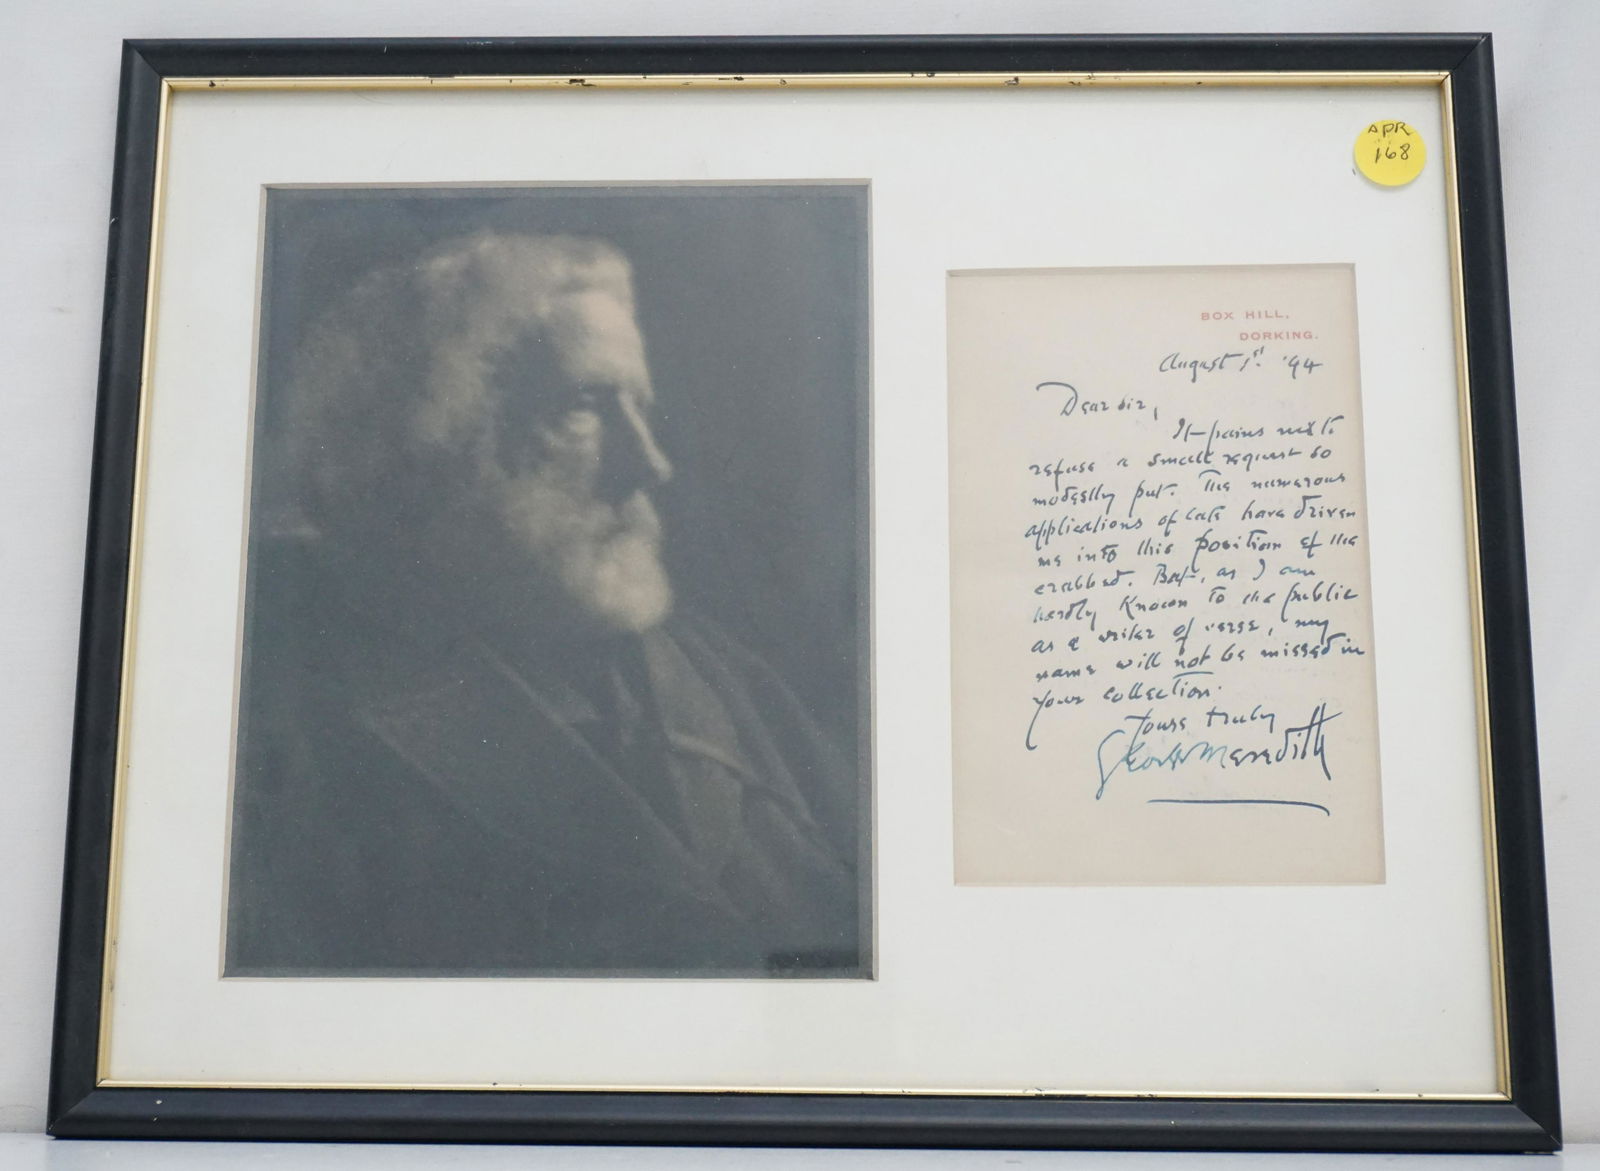 APR
168
BOX HILL,
DORKING.
August 1st. '94
Dear Sir,
It pains me to
refuse a small request so
modestly put. The numerous
applications of late have driven
me into this position of the
crabbed. But, as I am
hardly known to the public
as a writer of verse, my
name will not be missed in
your collection.
Yours truly
George Meredith